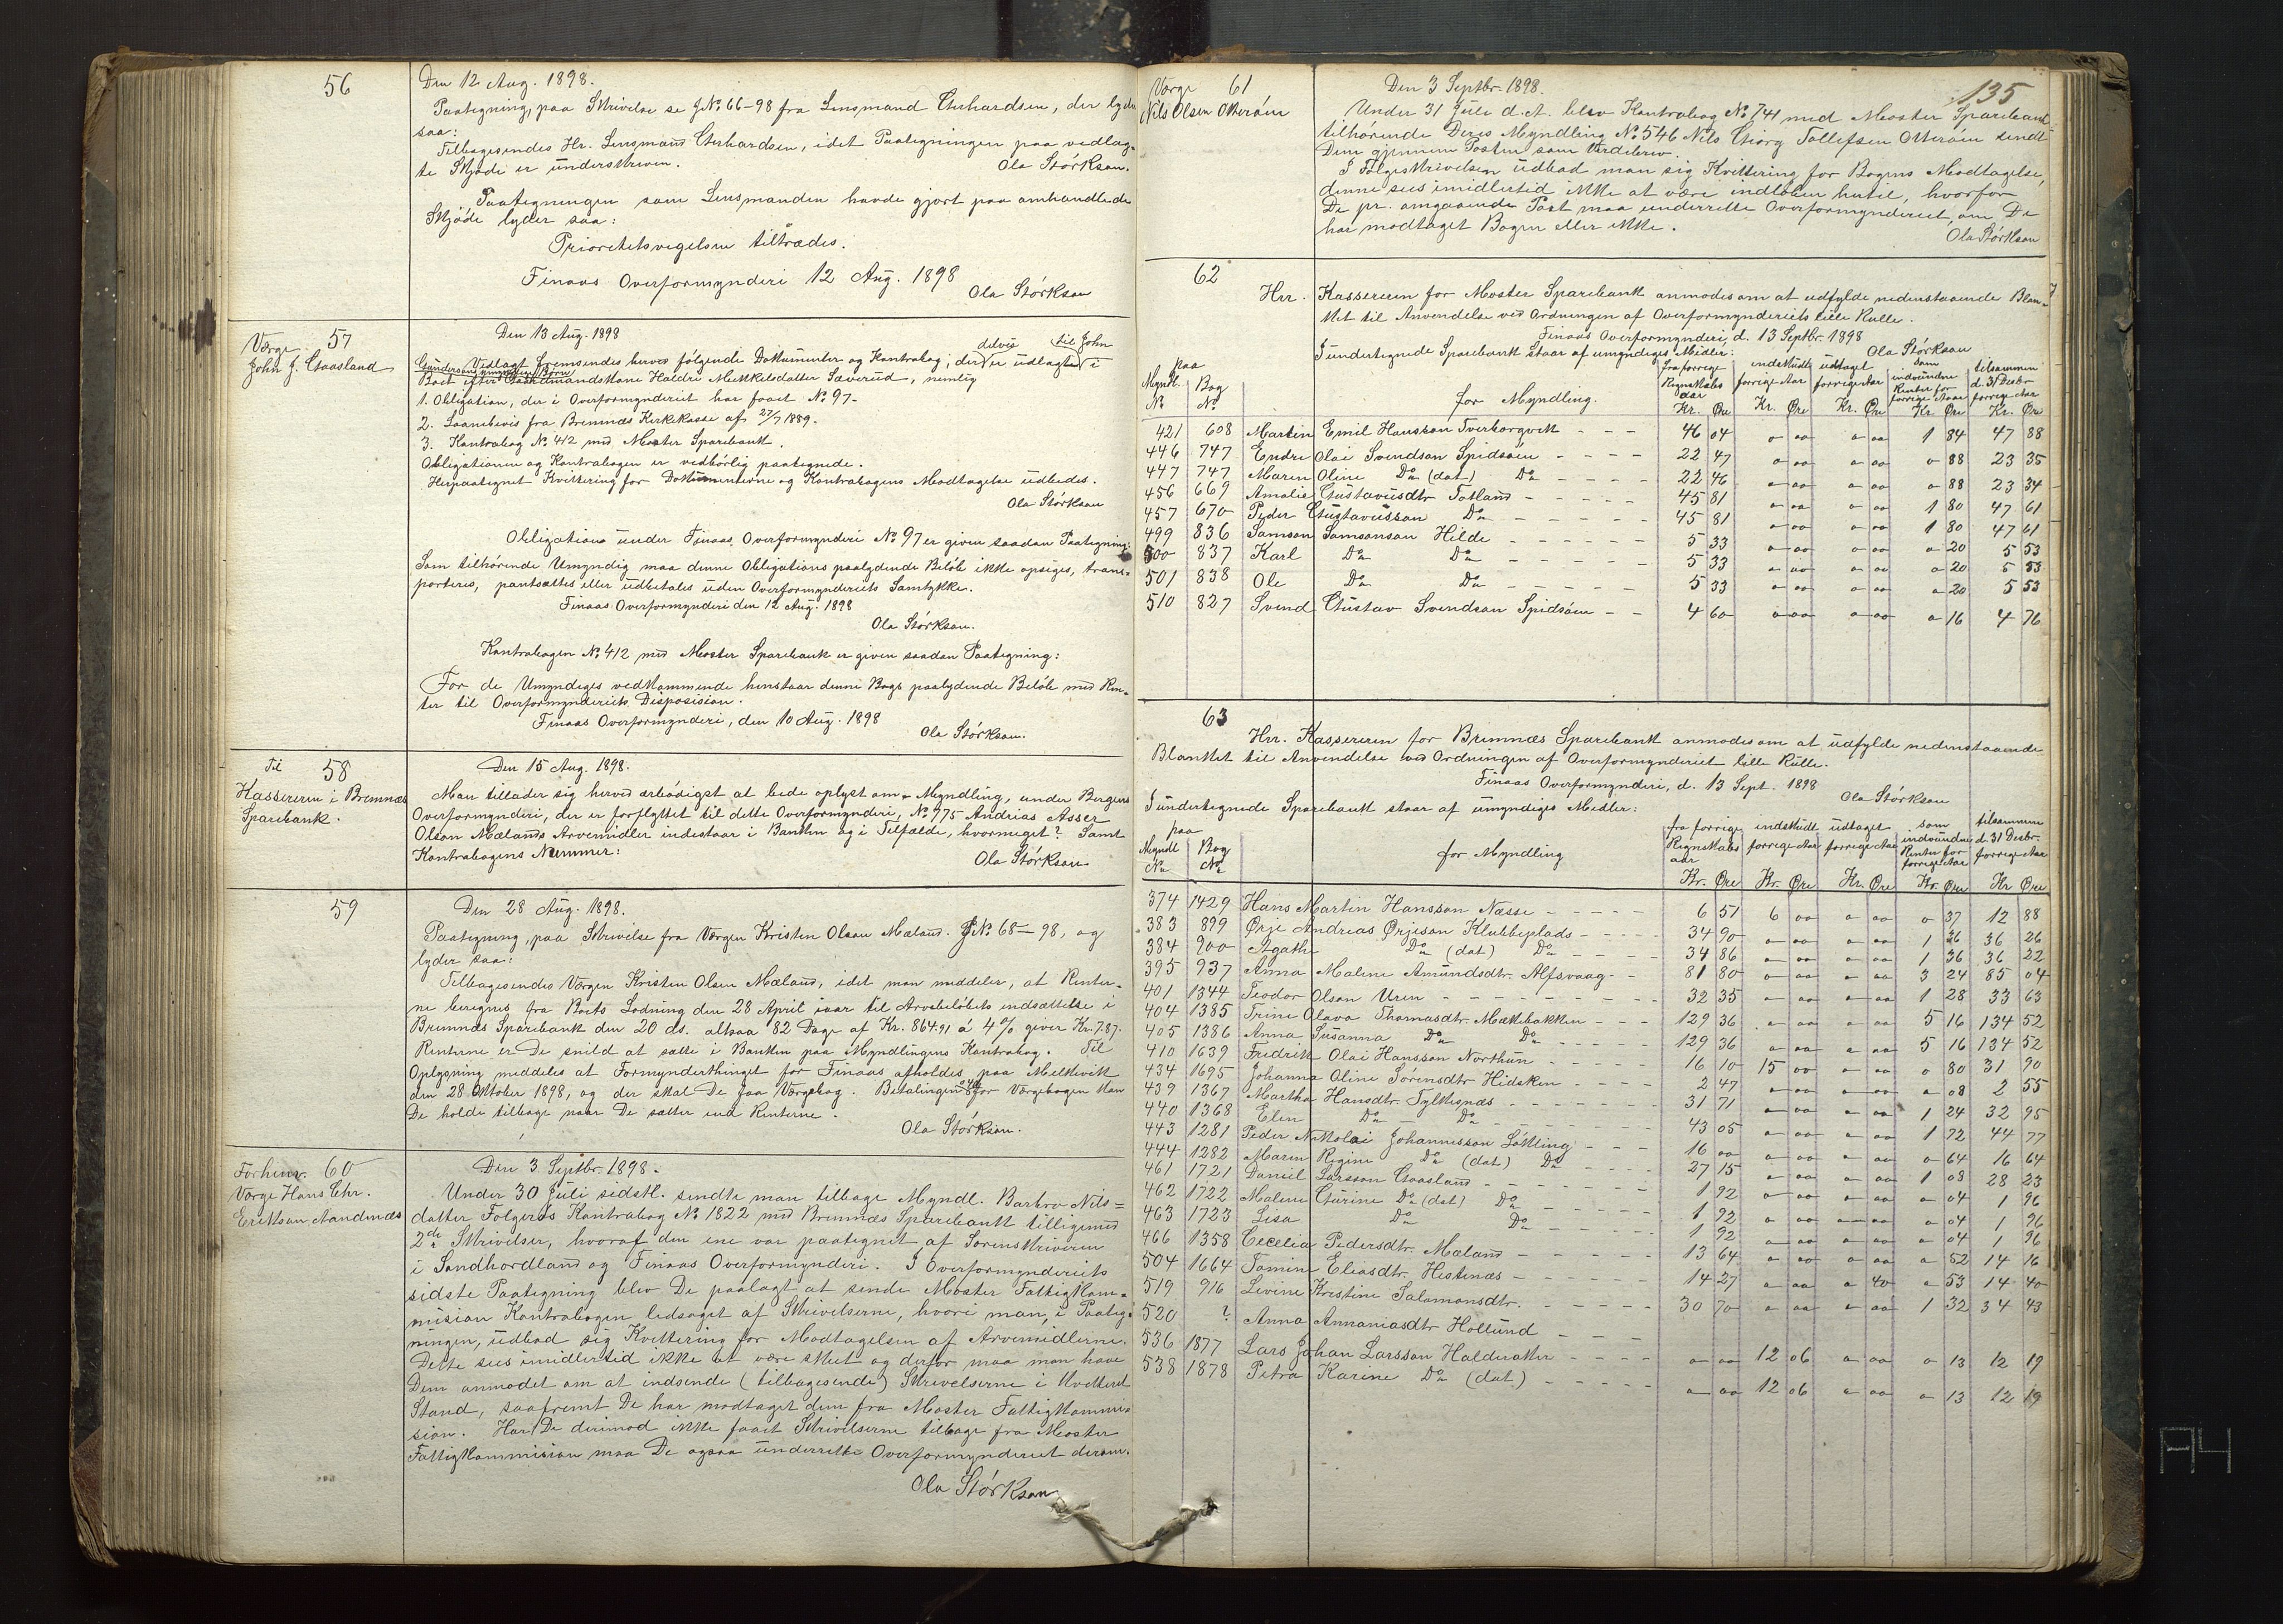 56
Den 12 Aug. 1898.
Paategning, paa Skrivelse se J№ 66-98 fra Lensmand Gerhardsen, der lyder
saa:
Tilbagesendes Hr. Lensmand Gerhardsen, idet Paategningen paa vedlag-
te Skjøde er underskreven.
Ola Størkson.
Paategningen som Lensmanden havde gjort paa omhandlede
Skjøde lyder saa:
Prioritetsvigelsen tiltrædes.
Finaas Overformynderi 12 Aug. 1898
Ola Størkson
57
Værge
John J. Gaasland
Den 13 Aug. 1898
Vedlagt fremsendes herved følgende Dokumenter og Kontrabog, der delvis er udlagte til John
Gundersens umyndige Børn i
Boet efter Gaardmandskone Haldri Mikkelsdatter Sæverud, nemlig
1. Obligation, der i Overformynderiet har faaet № 97-
2. Laanebevis fra Bremnæs Kirkekasse af 27/7 1889.
3. Kontrabog № 412 med Moster Sparebank.
Obligationen og Kontrabogen er vedbørlig paategnede.
Herpaategnet Kvittering for Dokumenterne og Kontrabogens Modtagelse udbedes.
Ola Størkson
Obligation under Finaas Overformynderi № 97 er given saadan Paategning:
Som tilhørende Umyndig maa denne Obligations paalydende Beløb ikke opsiges, trans-
porteres, pantsættes eller udbetales uden Overformynderiets Samtykke.
Finaas Overformynderi den 12 Aug. 1898
Ola Størkson.
Kontrabogen № 412 med Moster Sparebank er given saadan Paategning:
For de Umyndiges vedkommende henstaar denne Bogs paalydende Beløb med Ren-
ter til Overformynderiets Disposision.
Finaas Overformynderi, den 10 Aug. 1898
Ola Størkson.
Til 58
Kassereren i Bremnæs
Sparebank.
Den 15 Aug. 1898.
Man tillader sig herved ærbødigst at bede oplyst om Myndling, under Bergens
Overformynderi, der er forflyttet til dette Overformynderi, № 975 Andrias Asser
Olson Mælands Arvemidler indestaar i Banken og i Tilfælde, hvormeget? Samt
Kontrabogens Nummer:
Ola Størkson
59
Den 28 Aug. 1898.
Paategning, paa Skrivelse fra Værgen Kristen Olson Mæland. J№ 68-98, og
lyder saa:
Tilbagesendes Værgen Kristen Olsen Mæland, idet man meddeler, at Renter-
ne beregnes fra Boets Lodning den 28 April iaar til Arvebeløbets indsættelse i
Bremnæs Sparebank den 20 ds. altsaa 82 Dage af Kr. 864.91 á 4% giver Kr. 7.87.
Renterne er De snild at sætte i Banken paa Myndlingens Kontrabog. Til
Oplysning meddeles at Formynderthinget for Finaas afholdes paa Melkevikk
den 28 Oktober 1898, og der skal De faa Værgebog. Betalingen for Værgebogen kan
De holde tilbage naar De sætter ind Renterne.
Ola Størkson.
Forhenv. 60
Værge Hans Chr.
Erikson Aandnæs
Den 3 Septbr. 1898.
Under 30 Juli sidstl. sendte man tilbage Myndl. Barbro Nils-
datter Folgerøs Kontrabog № 1822 med Bremnæs Sparebank tilligemed
2de Skrivelser, hvoraf den ene var paategnet af Sorenskriveren
i Søndhordland og Finaas Overformynderi. I Overformynderiets
sidste Paategning blev De paalagt at sende Moster Fattigkom-
mision Kontrabogen ledsaget af Skrivelserne, hvori man, i Paateg-
ningen, udbad sig Kvittering for Modtagelsen af Arvemidlerne.
Dette sees imidlertid ikke at være skeet og derfor maa man have
Dem anmodet om at indsende (tilbagesende) Skrivelserne i kvitteret
Stand, saafremt De har modtaget dem fra Moster Fattigkommi-
sion. Har De derimod ikke faaet Skrivelserne tilbage fra Moster
Fattigkommision maa De ogsaa underrette Overformynderiet derom.
Ola Størkson
135
Værge 61
Nils Olsen Otterøm
Den 3 Septbr. 1898.
Under 31 Juli d.A. blev Kontrabog № 741 med Moster Sparebank
tilhørende Deres Myndling № 546 Nils Georg Tollefsen Otterøm sendt
Dem gjennem Posten som Værdibrev.
I Følgeskrivelsen udbad man sig Kvittering for Bogens Modtagelse,
denne sees imidlertid ikke at være indløben hertil, hvorfor
De pr. omgaaende Post maa underrette Overformynderiet, om De
har modtaget Bogen eller ikke.
Ola Størkson
62
Hrr. Kassereren for Moster Sparebank anmodes om at udfylde nedenstaaende Blan-
ket til Anvendelse ved Ordningen af Overformynderiets lille Rulle.
Finaas Overformynderi, d. 13 Septbr. 1898
Ola Størkson
I undertegnede Sparebank staar af umyndiges Midler:
paa
Myndl. № Bog № for Myndling. fra forrige Regnskabs aar indskudt forrige Aar udtaget forrige Aar som indvundne Renter for forrige Aar tilsammen d. 31 Decbr. forrige Aar
Kr. Øre Kr. Øre Kr. Øre Kr Øre Kr. Øre
421 608 Martin Emil Hansson Tverborgvik - - - 46 04 0 00 0 00 1 84 47 88
446 747 Endre Olai Svendson Spidsøen - - - - 22 47 0 00 0 00 0 88 23 35
447 747 Maren Oline Do (dat) Do - - - - 22 46 0 00 0 00 0 88 23 34
456 669 Amalie Gustavusdtr Totland - - - - - 45 81 0 00 0 00 1 80 47 61
457 670 Peder Gustavusson Do - - - - - 45 81 0 00 0 00 1 80 47 61
499 836 Samson Samsonson Hilde - - - - - - 5 33 0 00 0 00 0 20 5 53
500 837 Karl Do Do - - - - - - 5 33 0 00 0 00 0 20 5 53
501 838 Ole Do Do - - - - - 5 33 0 00 0 00 0 20 5 53
510 827 Svend Gustav Svendson Spidsøen - - 4 60 0 00 0 00 0 16 4 76
63
Hrr. Kassereren for Bremnæs Sparebank anmodes om at udfylde nedenstaaende
Blanket til Anvendelse ved Ordningen af Overformynderiet lille Rulle.
Finaas Overformynderi, d. 13 Sept. 1898
Ola Størkson
I undertegnede Sparebank staar af umyndiges Midler:
paa
Myndl № Bog № for Myndling fra forrige Regnskabs aar indskudt forrige Aar udtaget forrige Aar som indvundne Renter for forrige Aar tilsammen d. 31 Decbr. forrige Aar
Kr. Øre Kr. Øre Kr. Øre Kr. Øre Kr Øre
374 1429 Hans Martin Hansson Næsse - - - - - 6 51 6 00 0 00 0 37 12 88
383 899 Ørje Andreas Ørjeson Klubbeplads - - - - 34 90 0 00 0 00 1 36 36 26
384 900 Agathe Do (dat) Do - - - - 34 86 0 00 0 00 1 36 36 22
395 937 Anna Maline Amundsdtr. Alfsvaag - - 81 80 0 00 0 00 3 24 85 04
401 1344 Teodor Olson Uren - - - - - - - - - 32 35 0 00 0 00 1 28 33 63
404 1385 Trine Olava Thomasdtr. Mækebakken - - - 129 36 0 00 0 00 5 16 134 52
405 1386 Anna Susanna Do Do - - - - - 129 36 0 00 0 00 5 16 134 52
410 1639 Fredrik Olai Hansson Northun - - - - - 16 10 15 00 0 00 0 80 31 90
434 1695 Johanna Oline Sørensdtr Hidsken - - - - 2 47 0 00 0 00 0 08 2 55
439 1367 Martha Hansdtr. Tylkesnæs - - - - - - - 31 71 0 00 0 00 1 24 32 95
440 1368 Elen Do Do - - - - - - 43 05 0 00 0 00 1 72 44 77
443 1281 Peder Nikolai Johannesson Løkling - - - 16 00 0 00 0 00 0 64 16 64
444 1282 Maren Regine Do (dat) Do - - - - 27 15 0 00 0 00 1 08 28 23
461 1721 Daniel Larsson Gaasland - - - - - - - 1 92 0 00 0 00 0 04 1 96
462 1722 Maline Gurine Do (dat) Do - - - - - 1 92 0 00 0 00 0 04 1 96
463 1723 Lisa Do Do - - - - - 1 92 0 00 0 00 0 04 1 96
466 1358 Cecelia Pedersdtr. Mæland - - - - - 13 64 0 00 0 00 0 52 14 16
504 1664 Tomine Eliasdtr. Hestenæs - - - - - - 14 27 0 00 0 40 0 53 14 40
519 916 Livine Kristine Salamonsdtr. - - - - - 30 70 0 00 0 00 1 32 34 43
520 ? Anna Annaniasdtr Hollund - - -
536 1877 Lars Johan Larsson Halderaker - - - - 0 00 12 06 0 00 0 13 12 19
538 1878 Petra Karine Do (dat) - - - - - 0 00 12 06 0 00 0 13 12 19
A4